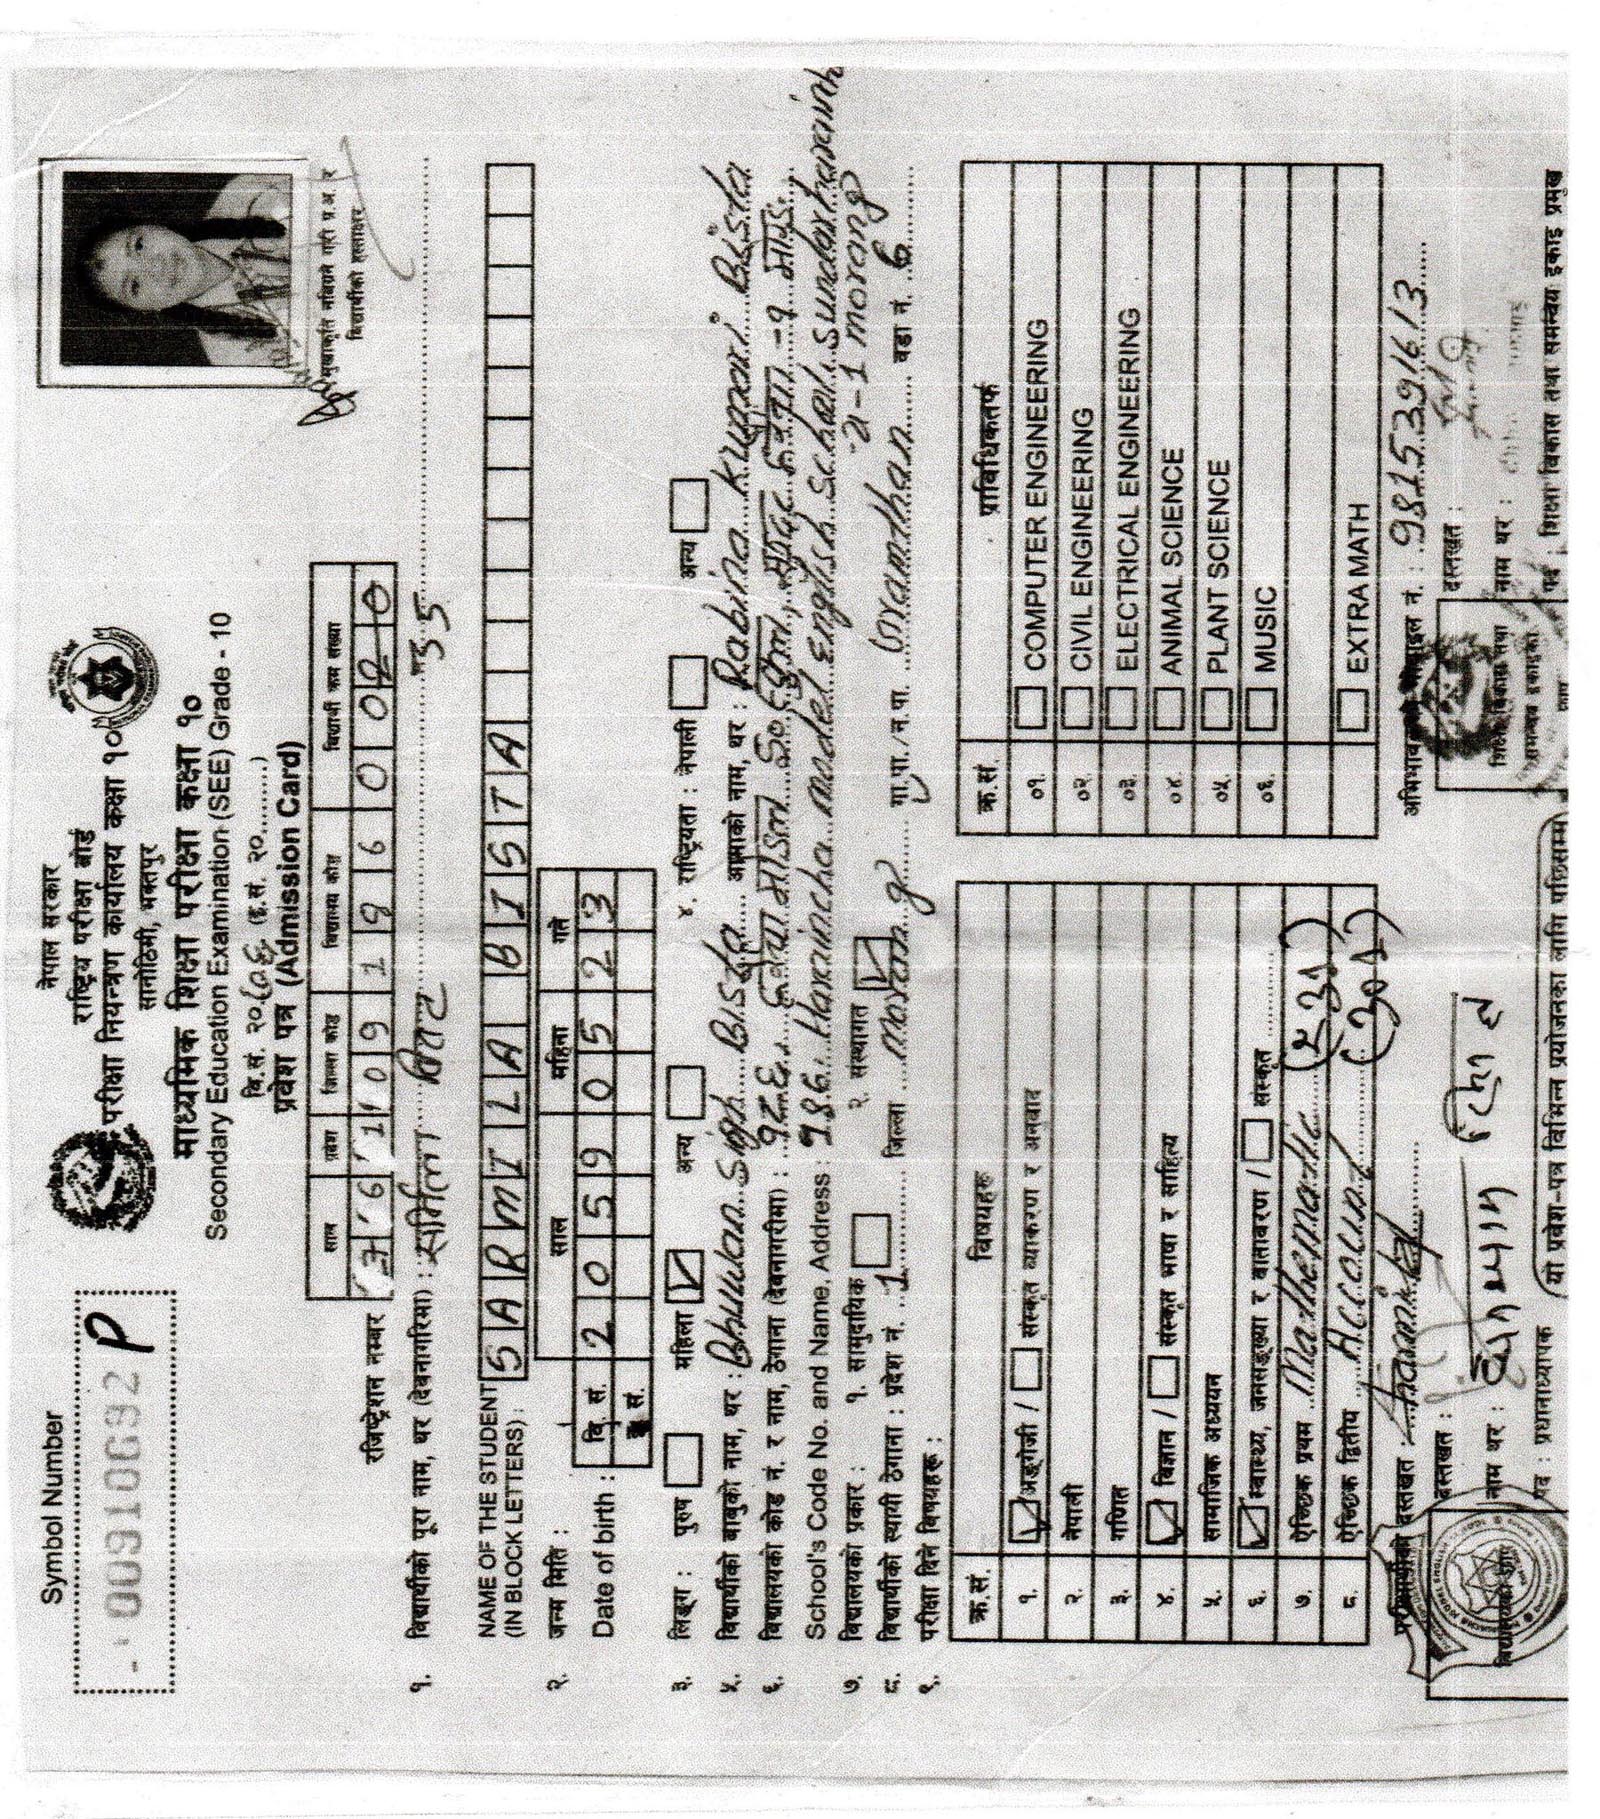 Symbol Number
P
नेपाल सरकार
राष्ट्रिय परीक्षा बोर्ड
परीक्षा नियन्त्रण कार्यालय कक्षा १०
सानोठिमी, भक्तपुर
माध्यमिक शिक्षा परीक्षा कक्षा १०
Secondary Education Examination (SEE) Grade - 10
वि.सं. २०७६ (इ.सं. २०..........)
प्रवेश पत्र (Admission Card)
साल प्रदेश जिल्ला कोड विद्यालय कोड विद्यार्थी क्रम संख्या
रजिष्ट्रेशन नम्बर 7 6 1 0 9 1 9 6 0 0 2 0
35
विद्यार्थीको हस्ताक्षर
१. विद्यार्थीको पूरा नाम, थर (देवनागरिमा) : सर्मिला बिष्ट
NAME OF THE STUDENT (IN BLOCK LETTERS) : SARMILA BISTA
२. जन्म मिति :
साल महिना गते
Date of birth : वि. सं. 2 0 5 9 0 5 2 3
३. लिङ्ग : पुरुष महिला अन्य ४. राष्ट्रियता : नेपाली अन्य
५. विद्यार्थीको बाबुको नाम, थर : Bhuwan Singh Bista आमाको नाम, थर : Rabina Kumari Bista
६. विद्यालयको कोड नं. र नाम, ठेगाना (देवनागरीमा) : १९६, हरैंचा मोडल इं. स्कूल, सुन्दर हरैंचा -१ मोरङ
School's Code No. and Name, Address : 196. Haraincha model english school. sundarharaincha-1 morong
७. विद्यालयको प्रकार : १. सामुदायिक २. संस्थागत
८. विद्यार्थीको स्थायी ठेगाना : प्रदेश नं. 1 जिल्ला morang गा.पा./न.पा. Gramthan वडा नं. 6
९. परीक्षा दिने विषयहरू :
क्र.सं. विषयहरू
१. अङ्ग्रेजी / संस्कृत व्याकरण र अनुवाद
२. नेपाली
३. गणित
४. विज्ञान / संस्कृत भाषा र साहित्य
५. सामाजिक अध्ययन
६. स्वास्थ्य, जनसङ्ख्या र वातावरण / संस्कृत
७. ऐच्छिक प्रथम Mathematic (231)
८. ऐच्छिक द्वितीय Account (201)
क्र.सं. प्राविधिकतर्फ
०१. COMPUTER ENGINEERING
०२. CIVIL ENGINEERING
०३. ELECTRICAL ENGINEERING
०४. ANIMAL SCIENCE
०५. PLANT SCIENCE
०६. MUSIC
EXTRA MATH
परीक्षार्थीको दस्तखत :
अभिभावकको मोबाइल नं. : 9815391613
दस्तखत :
नाम थर :
पद : प्रधानाध्यापक
दस्तखत :
नाम थर :
पद : शिक्षा विकास तथा समन्वय इकाइ प्रमुख
(यो प्रवेश-पत्र विभिन्न प्रयोजनका लागि पछिसम्म